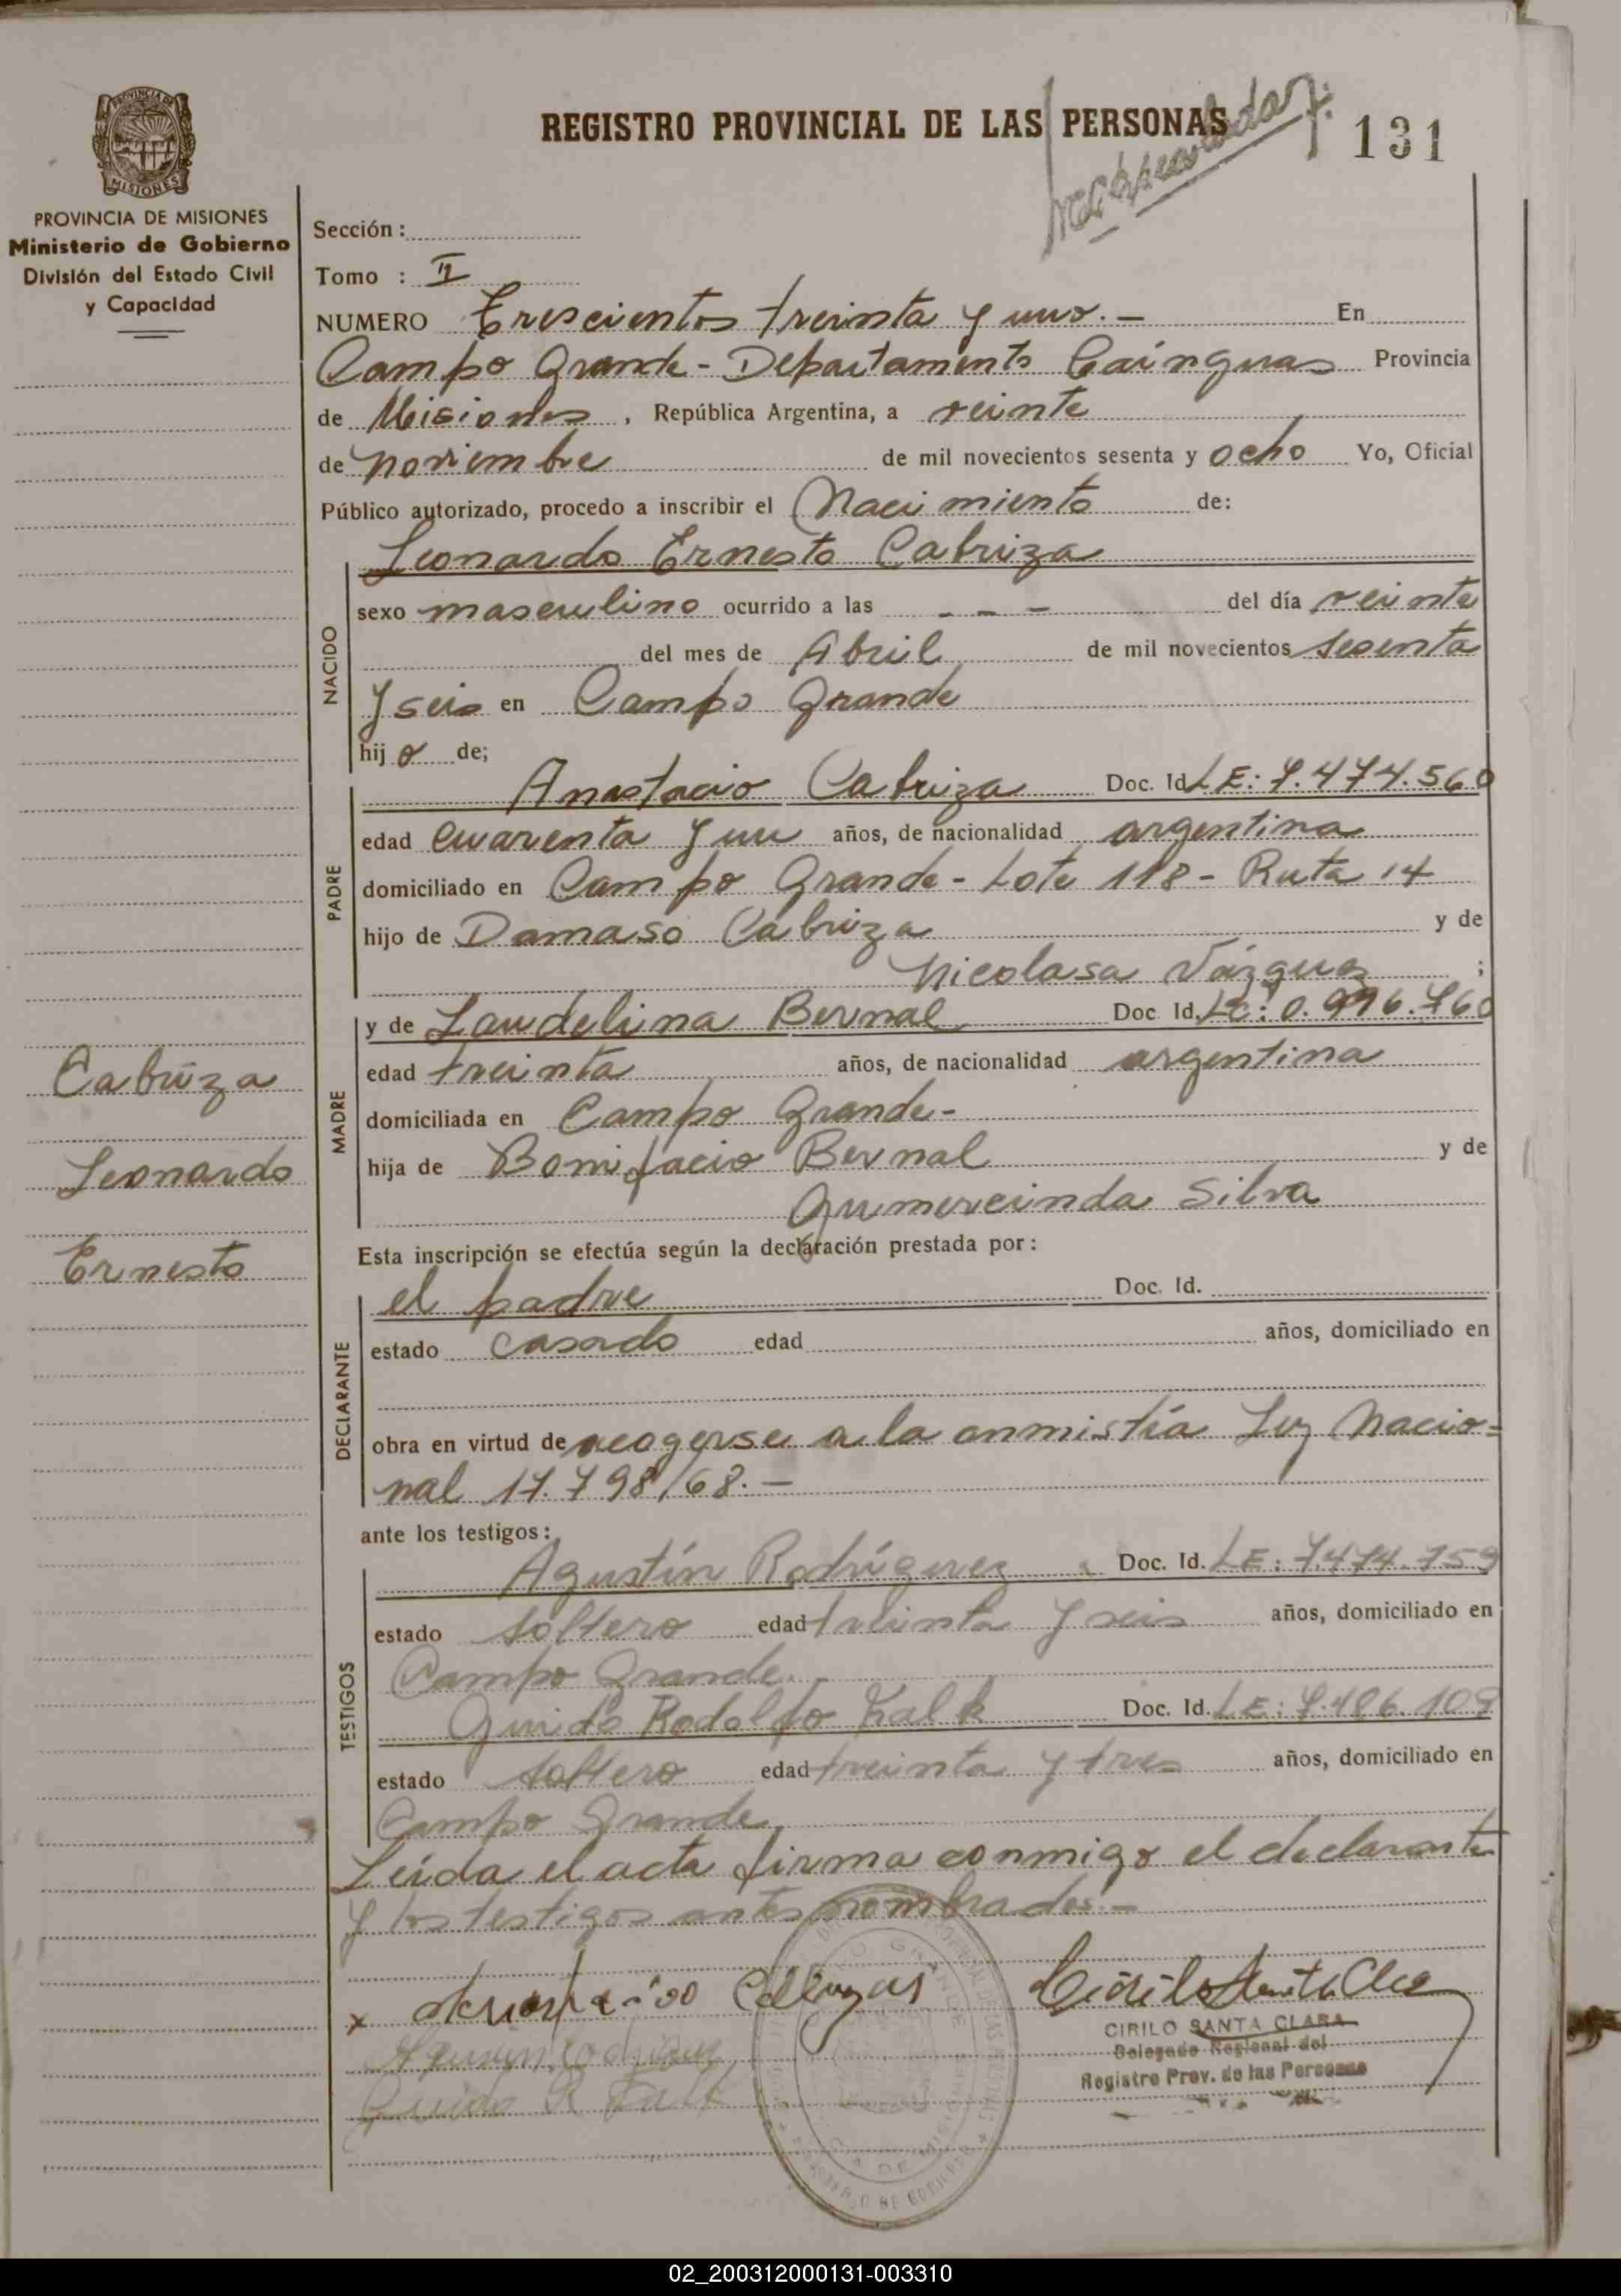 REGISTRO PROVINCIAL DE LAS PERSONAS
131
PROVINCIA DE MISIONES
Ministerio de Gobierno
División del Estado Civil
y Capacidad
Sección :
Tomo : II
NUMERO Trescientos treinta y uno.- En
Campo Grande - Departamento Cainguas Provincia
de Misiones, República Argentina, a veinte
de noviembre de mil novecientos sesenta y ocho Yo, Oficial
Público autorizado, procedo a inscribir el Nacimiento de:
Leonardo Ernesto Cabriza
NACIDO
sexo masculino ocurrido a las - - - del día veinte
del mes de Abril de mil novecientos sesenta
y seis en Campo Grande
hijo de;
PADRE
Anastacio Cabriza Doc. Id. LE: 7.474.560
edad cuarenta y un años, de nacionalidad argentina
domiciliado en Campo Grande - Lote 118 - Ruta 14
hijo de Damaso Cabriza y de
Nicolasa Vázquez ;
MADRE
y de Laudelina Bernal Doc. Id. LC:
edad treinta años, de nacionalidad argentina
domiciliada en Campo Grande-
hija de Bonifacio Bernal y de
Gumercinda Silva
Cabriza
Leonardo
Ernesto
Esta inscripción se efectúa según la declaración prestada por:
DECLARANTE
el padre Doc. Id.
estado casado edad años, domiciliado en
obra en virtud de acogerse a la anmistía Ley Nacio=
nal 17.798/68.-
ante los testigos:
TESTIGOS
Agustín Rodríguez Doc. Id. LE: 7.474.759
estado soltero edad treinta y seis años, domiciliado en
Campo Grande.
Guido Rodolfo Falk Doc. Id. LE: 7.486.109
estado soltero edad treinta y tres años, domiciliado en
Campo Grande
Leída el acta firma conmigo el declarante
y los testigos antes nombrados.-
x
Cirilo Santa Clara
CIRILO SANTA CLARA
Delegado Regional del
Registro Prov. de las Personas
Guido R Falk
02_200312000131-003310